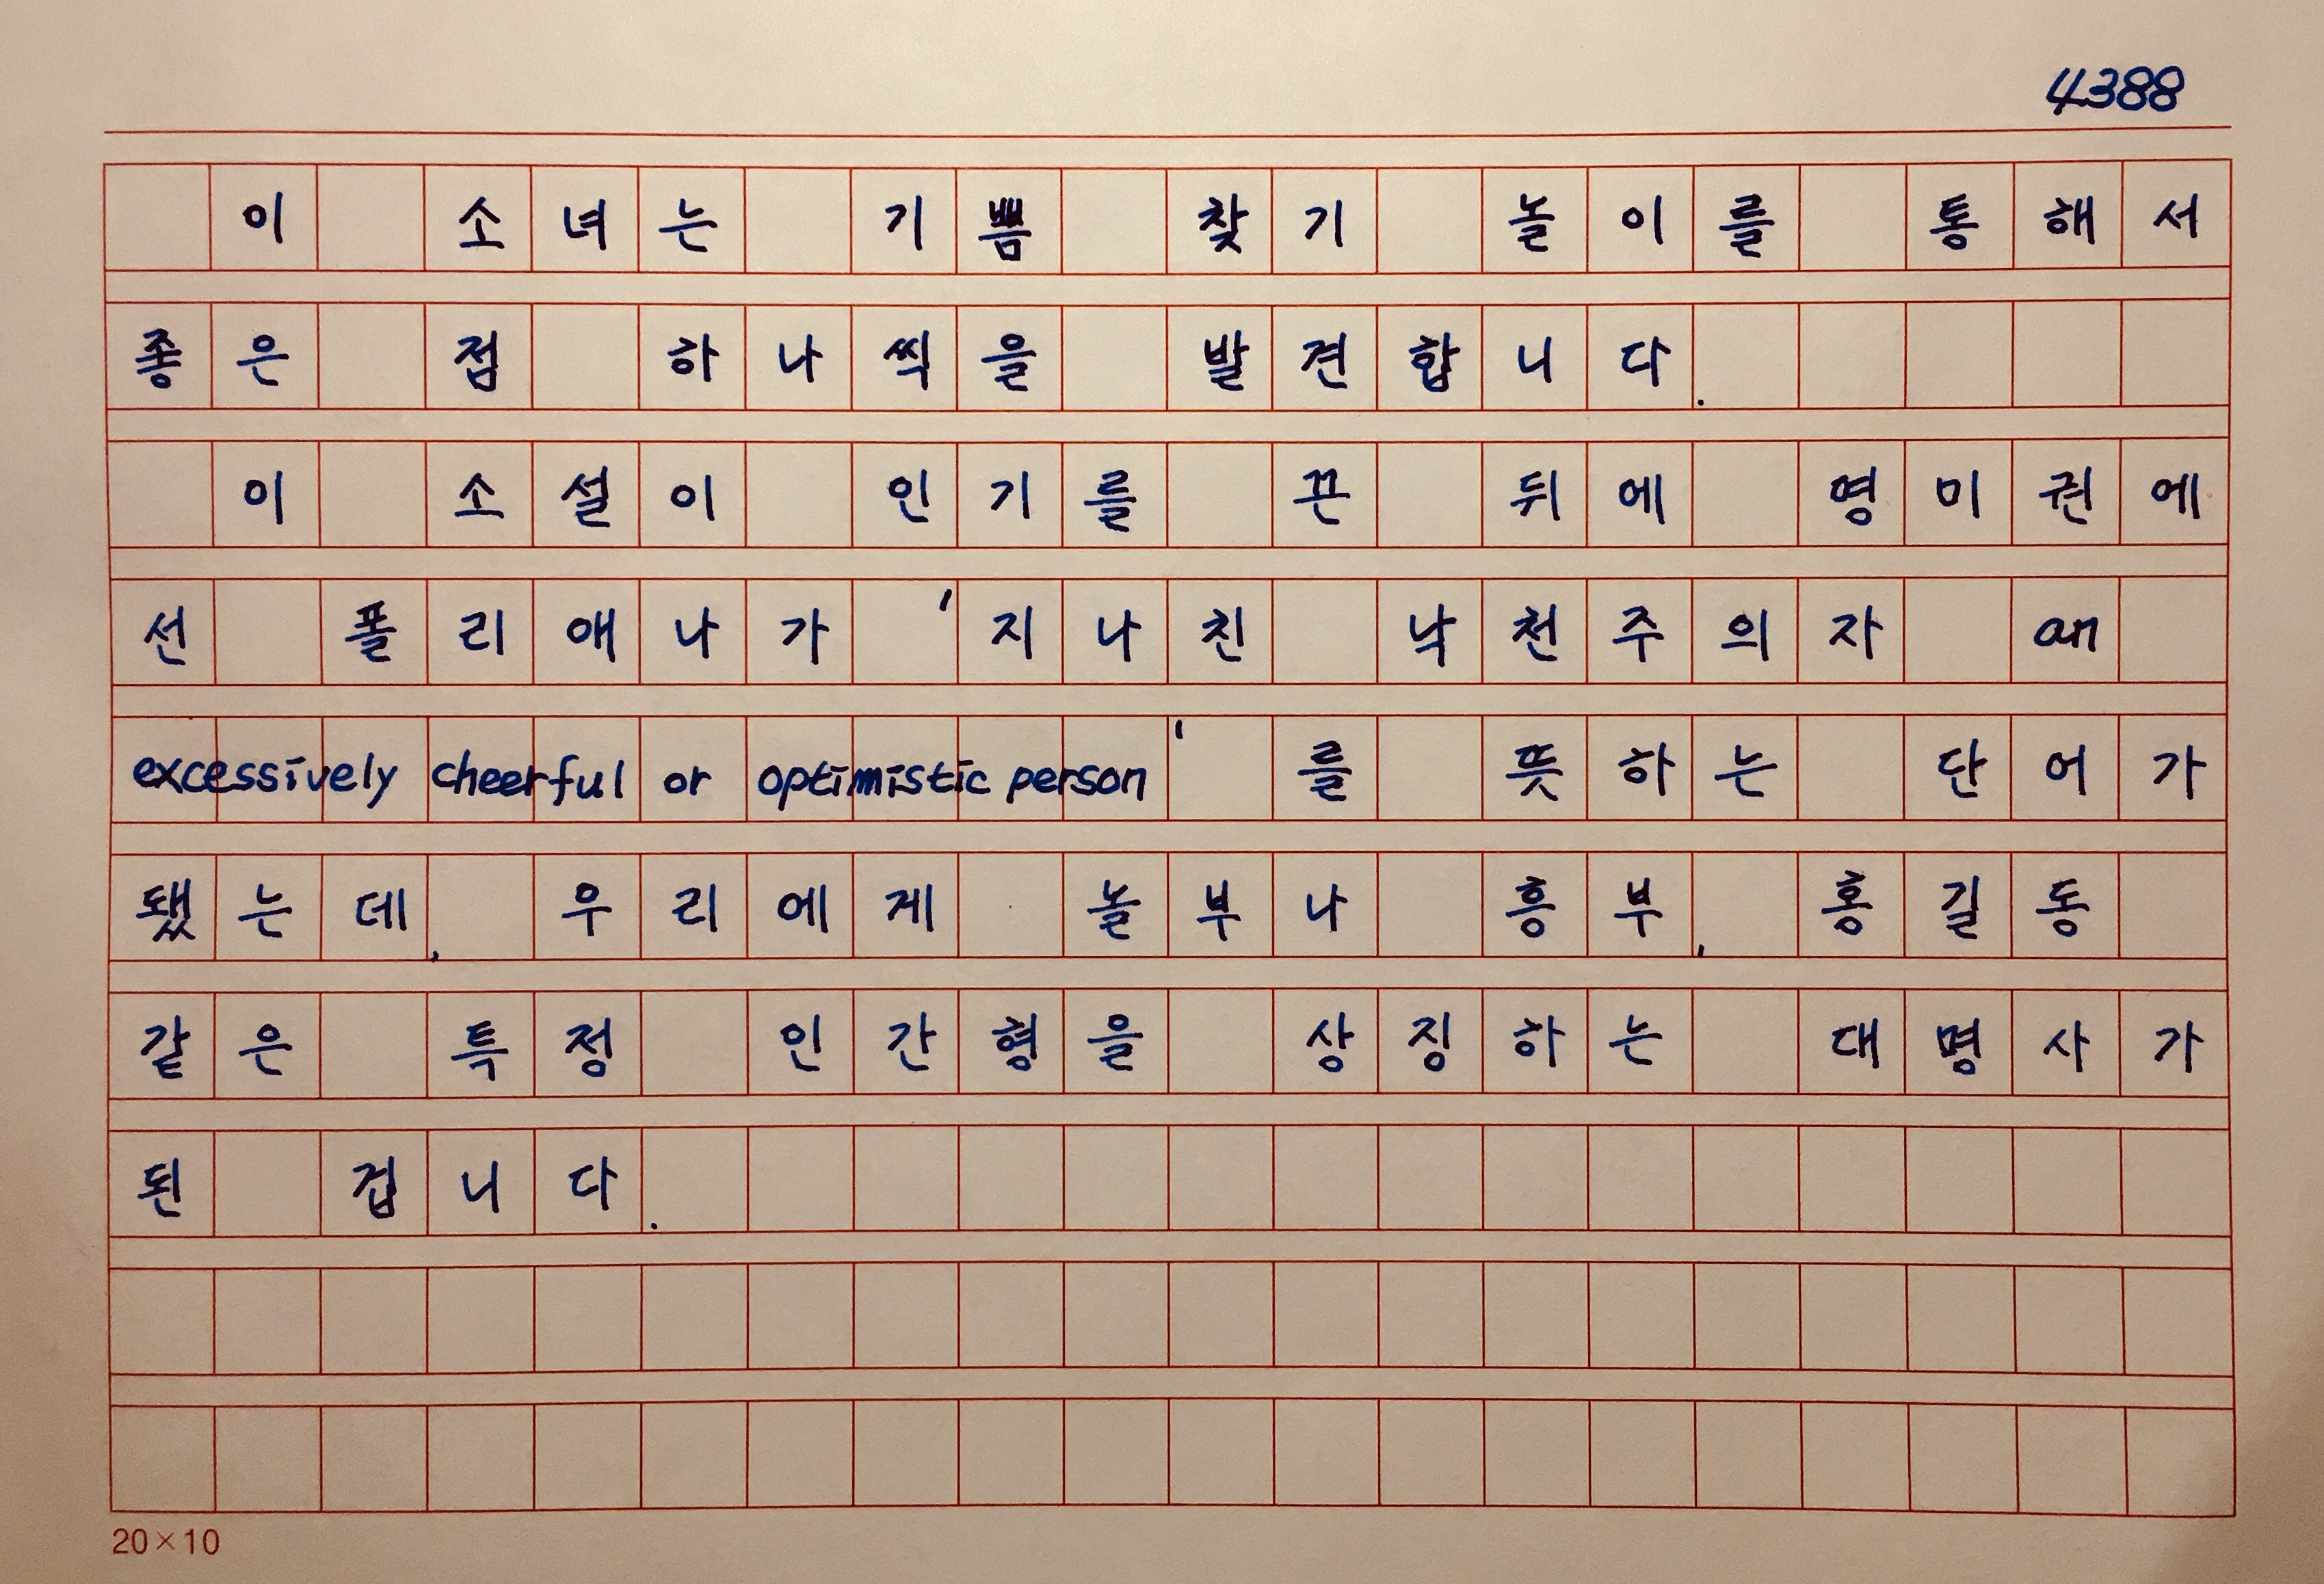 4388
이 소녀는 기쁨 찾기 놀이를 통해서
좋은 점 하나씩을 발견합니다.
이 소설이 인기를 끈 뒤에 영미권에
선 폴리애나가 '지나친 낙천주의자 an
excessively cheerful or optimistic person'를 뜻하는 단어가
됐는데, 우리에게 놀부나 흥부, 홍길동
같은 특정 인간형을 상징하는 대명사가
된 겁니다.
20×10